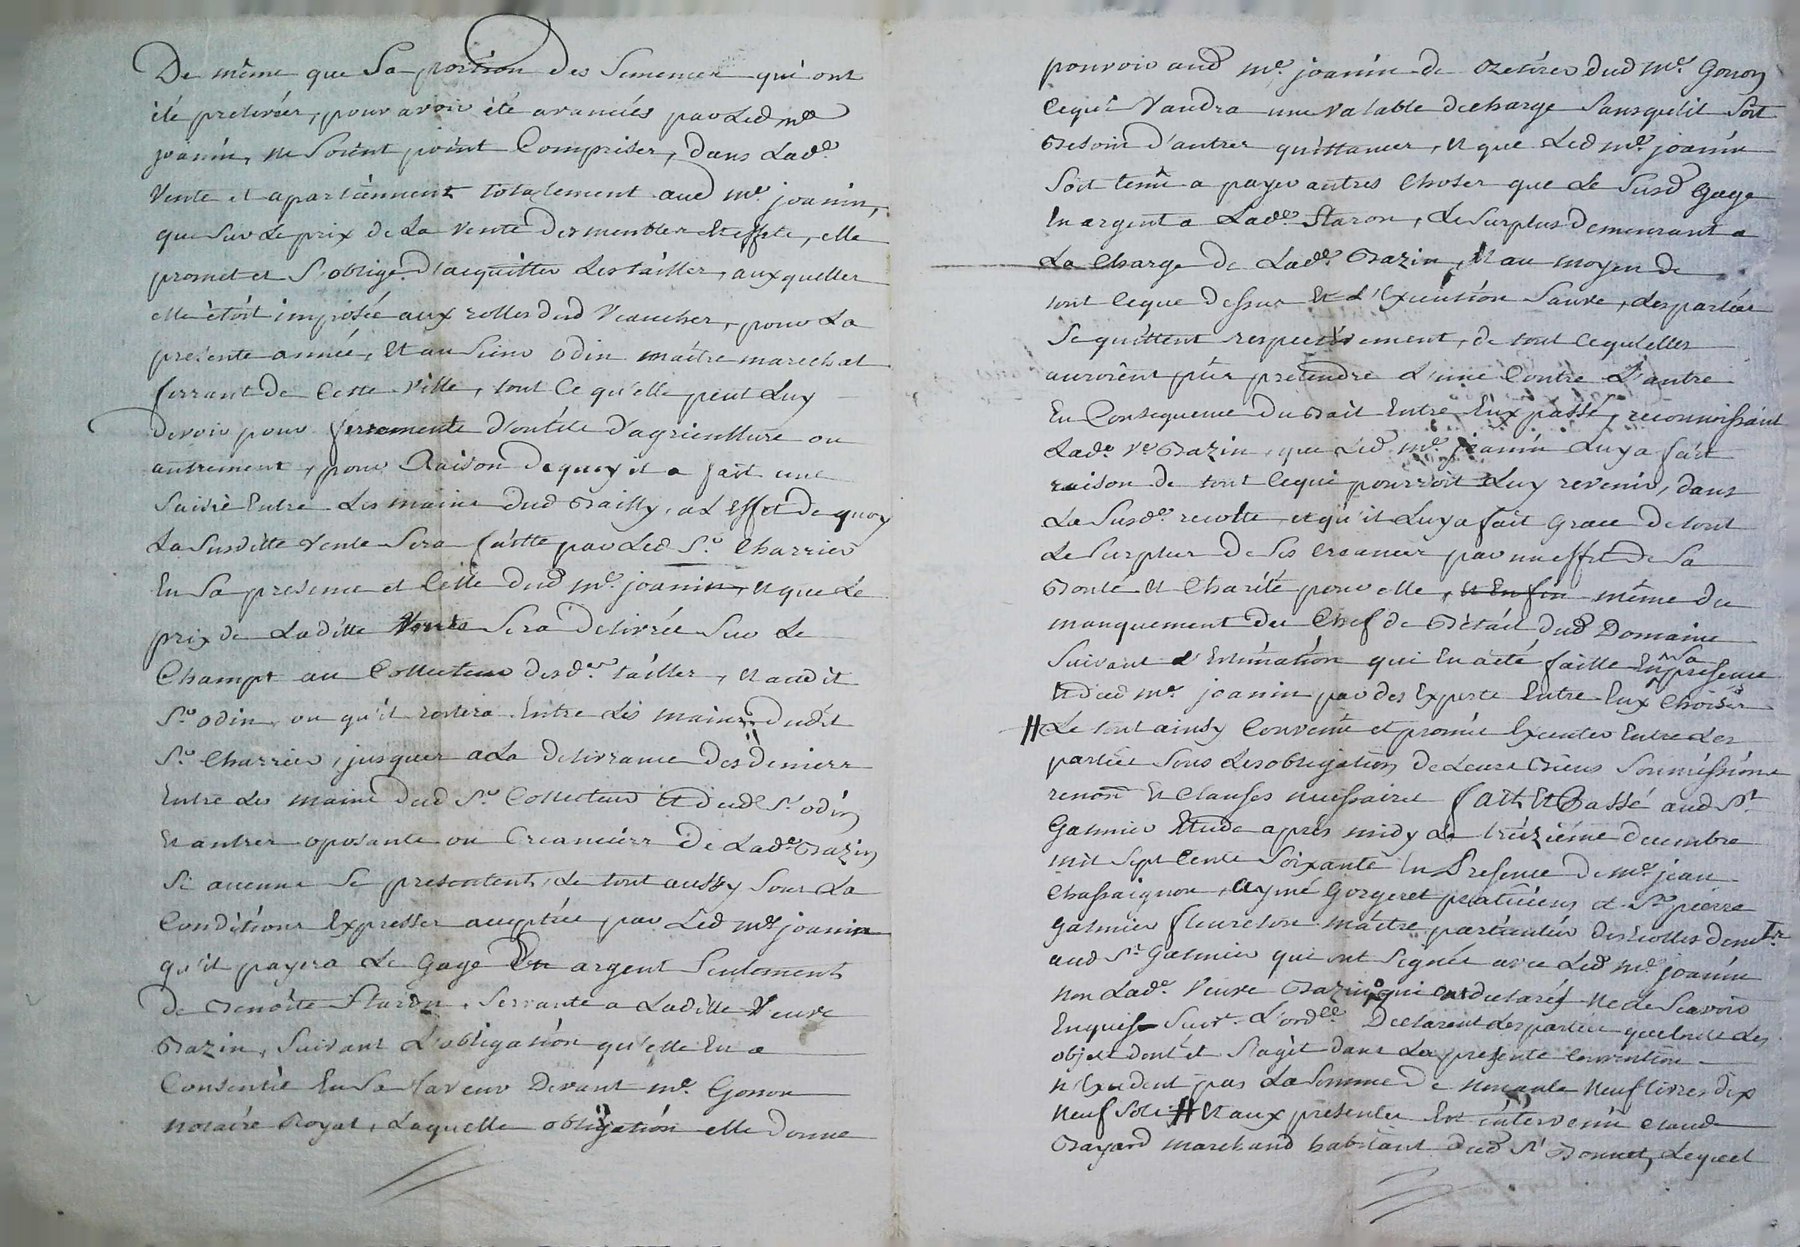 De même que sa portion des semences qui ont
été prelevées, pour avoir été avancées par Led me
joanin, ne soient point Comprises, dans Lade
vente et apartiennent totalement aud me joanin,
que sur Le prix de La vente des meubles et effets, elle
promet et s'oblige d'acquitter Les tailles, auxquelles
elle étoit imposée aux rolles dud Veaucher, pour La
presente année, Et au sieur odin maitre marechal
ferrant de Cette Ville, tout Ce qu'elle peut Luy
devoir pour ferrements d'outils d'agriculture ou
autrement, pour Raison de quoy il a fait une
saisie Entre Les mains dud Bailly, a L'Effet de quoy
La susditte vente sera faitte par Led Sr Charrier
En sa presence et Celle dud me joanin, et que Le
prix de Laditte Vente sera delivrée sur Le
Champt au Collecteur desdes tailles, et audit
Sr odin, ou qu'il restera Entre Les mains dudit
Sr Charrier, jusques a La delivrance des deniers
Entre Les mains dud Sr Collecteur Et dud Sr odin
Et autres oposants ou Creanciers de Lade Bazin
si aucuns se presentent, Le tout aussy sous La
Conditions Expresses acceptée par Led me joanin
qu'il payera Le gage En argent seulement
de Benoite Staron, servante a Laditte Veuve
Bazin, suivant L'obligation qu'elle En a
Consentie En sa faveur Devant me Gonon
notaire Royal, Laquelle obligation elle donne
pouvoir aud me joanin de Retirer dud me Gonon
Cequi Vaudra une valable decharge sans qu'il soit
Besoin d'autres quittances, et que Led me joanin
soit tenu a payer autres Choses que Le susd Gage
En argent a Lade Staron, Le surplus demeurant a
La Charge de Lade Bazin, Et au moyen de
tout Ceque dessus Et L'Execution sauve, Les parties
se quittent respectivement, de tout Cequ'elles
auroient pües pretendre L'une Contre L'autre
En Consequence du Bail Entre Eux passé, reconnoissant
Lade ve Bazin, que Led me joanin Luy a fait
raison de tout Cequi pourroit Luy revenir, dans
La susde recolte, et qu'il Luy a fait grace de tout
Le surplus de ses Creances par un effet de sa
Bonté Et Charité pour elle, et Enfin même du
manquement du Chef de Bétail dud Domaine
suivant L'Estimation qui En a été faitte En sa presence
Et dud me joanin par des Experts Entre Eux Choisis
# Le tout ainsy Convenu et promis Executer Entre Les
parties sous Les obligations de Leurs Biens soumissions
renon Et Clauses necessaires fait Et Passé aud St
Galmier Etude apres midy Le treizieme decembre
mil sept Cents soixante En Presence de me jean
Chassaignon, aymé Gorgeret praticiens & Sr pierre
galmier fleureton maitre particulier des Ecolles demts
aud St Galmier qui ont signés avec Led me joanin
non Lade Veuve Bazin qui a declaré ne le scavoir
Enquise suivt L'ordce Declarent Les parties que tous Les
objets dont il s'agit dans La presente Convention
n'Excedent pas La somme de nonante neuf livres dix
neuf sols # Et aux presentes Est intervenu Claude
Bayard marchand habitant dud St Bonnet, Lequel